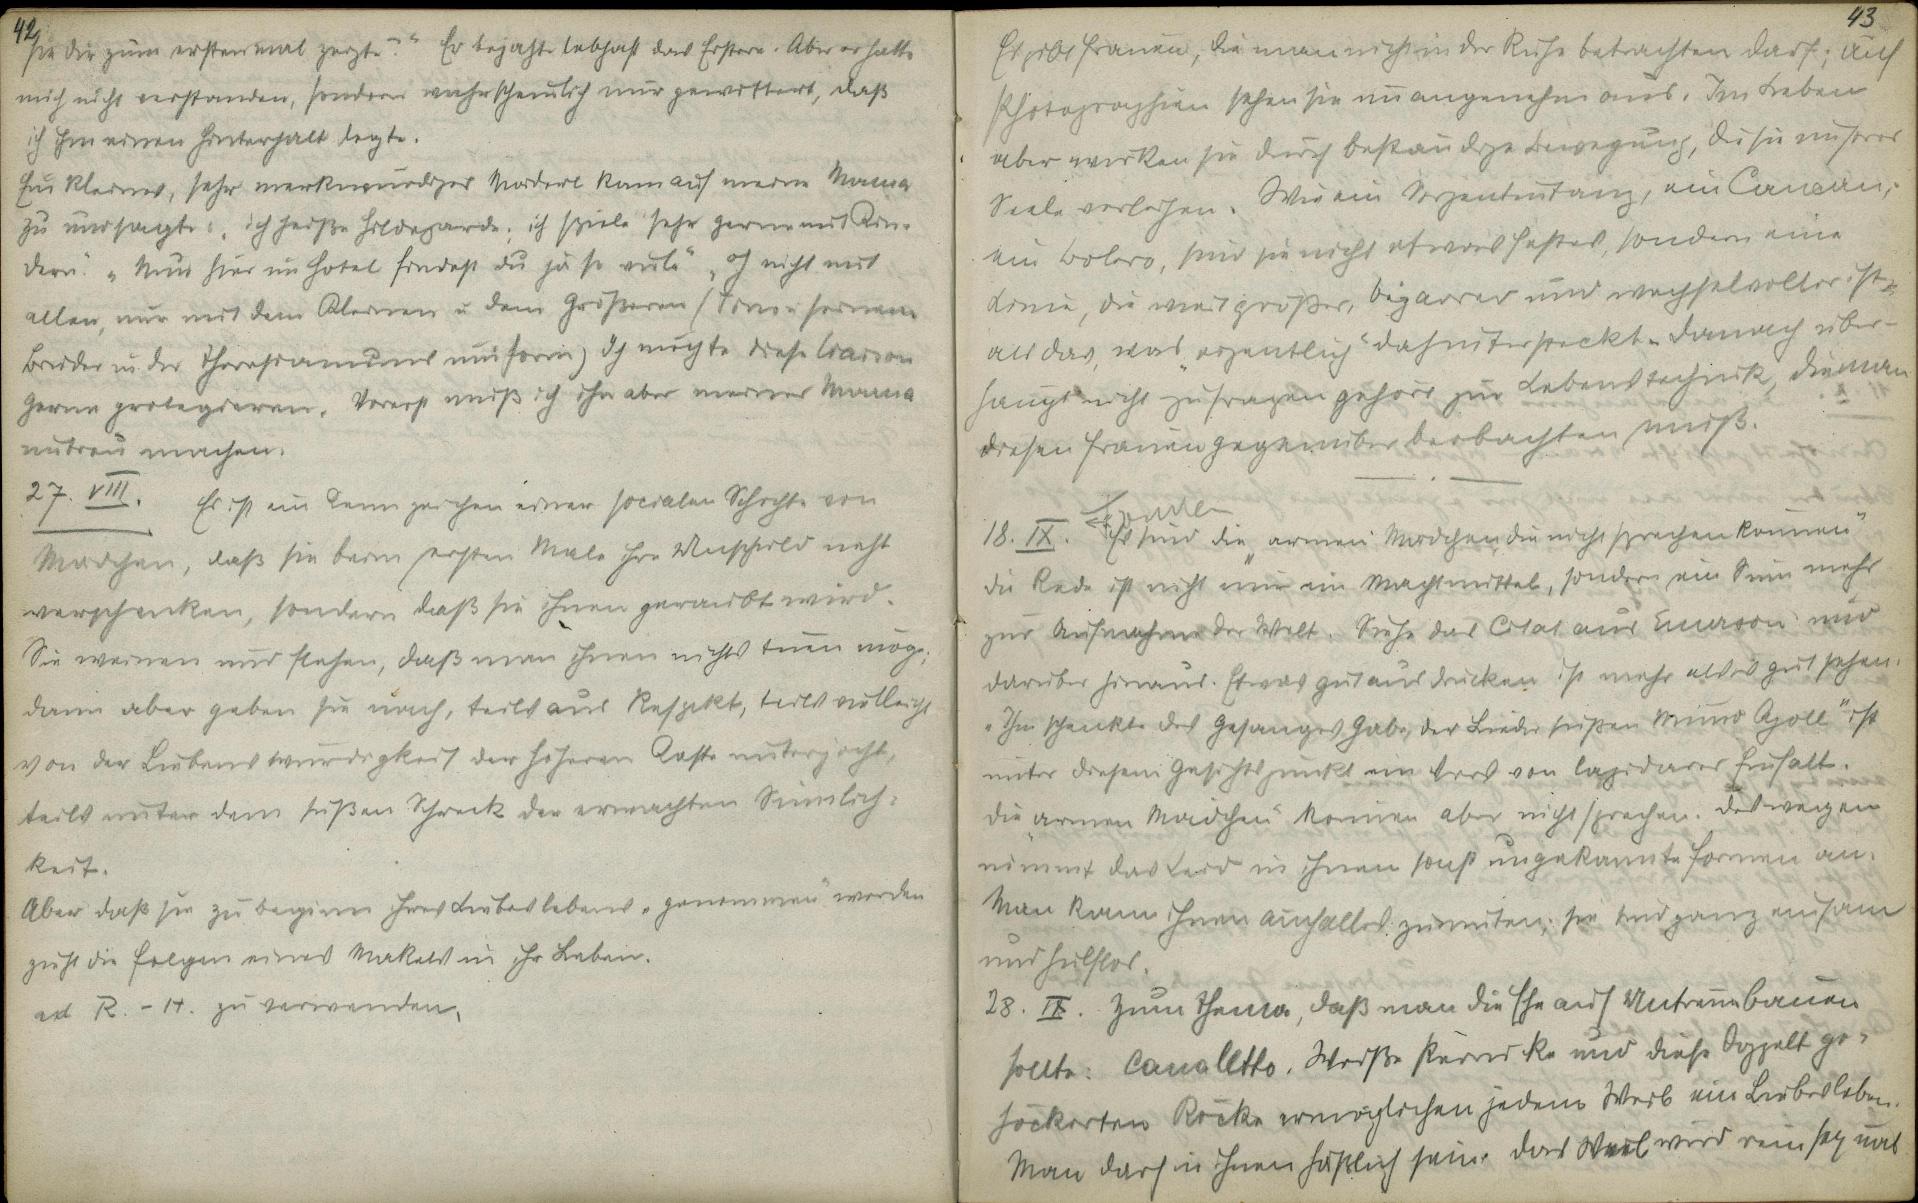 42
sie dir zum erstenmal zeigte?" Er bejahte lebhaft das Erstere. Aber er hatte
mich nicht verstanden, sondern wahrscheinlich nur gewittert, daß
ich ihm einen Hinterhalt legte.
Ein kleines, sehr merkwürdiges Mäderl kam auf meine Mama
zu und sagte: „ich heiße Hildegarde; ich spiele sehr gerne mit Kin-
dern." „Nun hier im Hotel findest du ja so viele" „Oh nicht mit
allen, nur mit dem Kleinen u dem Größeren (
Bruder in der Theresianumsuniform) Ich möchte diese Liaison
gerne protegieren. Vorerst muß ich ihn aber meiner Mama
untreu machen.
27. VIII. Es ist ein Kennzeichen einer socialen Schichte von
Mädchen, daß sie beim ersten Male ihre Unschuld nicht
verschenken, sondern daß sie ihnen geraubt wird.
Sie weinen und flehen, daß man ihnen nichts tuen möge;
dann aber geben sie nach, teils aus Respekt, teils vielleicht
von der Liebenswürdigkeit der höheren Kaste unterjocht,
teils unter dem süßen Schreck der erwachten Sinnlich-
keit.
Aber daß sie zu beginn ihres Liebeslebens „genommen" werden
zieht die Folgen eines Makels in ihr Leben.
ad R. - H. zu verwenden.
43
Es gibt Frauen, die man nicht in der Ruhe betrachten darf; auf
Photographien sehen sie unangenehm aus. Im Leben
aber wirken sie durch beständige Bewegung, die sie unserer
Seele verleihen. Wie ein Serpentintanz, ein Cancan,
ein Bolero, sind sie nicht etwas festes, sondern eine
Linie, die weit größer, bizarrer und wechselvoller ist
als das, was „eigentlich" dahintersteckt. Danach über-
haupt nicht zu fragen gehört zur Lebenstechnik, die man
diesen Frauen gegenüber beobachten muß.
18. IX. Es sind die „armen Mädchen, die nicht sprechen können"
die Rede ist nicht nur ein Machtmittel, sondern ein Sinn mehr
zur Aufnahme der Welt. Siehe das Citat aus Emerson und
darüber hinaus. Etwas gut ausdrücken ist mehr als es gut sehen.
„Ihm schenkte des Gesanges Gabe, der Lieder süßen Mund Apoll" ist
unter diesem Gesichtspunkt ein Vers von lapidarer Einfalt.
Die „armen Mädchen" können aber nicht sprechen. Deswegen
nimmt das Leid in ihnen sonst ungekannte Formen an.
Man kann ihnen auch alles zumuten; sie sind ganz einsam
und hülflos.
28. IX. Zum Thema, daß man die Ehe auf Untreue bauen
sollte: Canaletto. Weiße Perücke und diese doppelt ge-
höckerten Röcke ermöglichen jedem Weib ein Liebesleben.
Man darf in ihnen häßlich sein. das Weib wird rein sexual